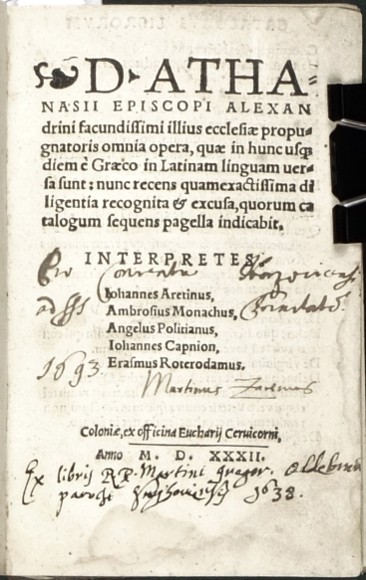 D. ATHA
NASII EPISCOPI ALEXAN
drini facundissimi illius ecclesiæ propu
gnatoris omnia opera, quæ in hunc usq́
diem è Græco in Latinam linguam uer
sa sunt: nunc recens quamexactissima di
ligentia recognita & excusa, quorum ca
talogum sequens pagella indicabit.
INTERPRETES.
Pro Conventu
Iohannes Aretinus,
ad SS
Ambrosius Monachus,
Angelus Politianus,
Iohannes Capnion,
1693
Erasmus Roterodamus.
Martinus
Coloniæ, ex officina Eucharij Ceruicorni,
Anno M. D. XXXII.
Ex libris R.P. Martini Gregor.
parochi 1638.